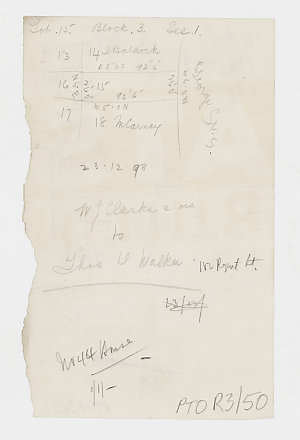 Lot. 15 Block. 3. Sec. 1.
13 14 J Baldock
45·05 92'6"
16 15
92'6"
17 45·0N
18 McCarney
George St
23-12 98
W J Clarke & ors
to
Thos V Walker 182 Regent St.
No 44 House
1/1/-
PTO R3/50